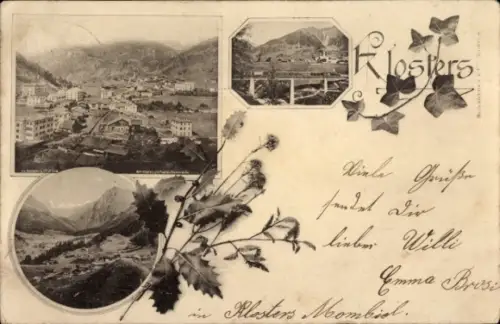 Klosters
Viele Grüße
sendet Dir
lieber Willi
Emma Brosi
in Klosters Mombiel.